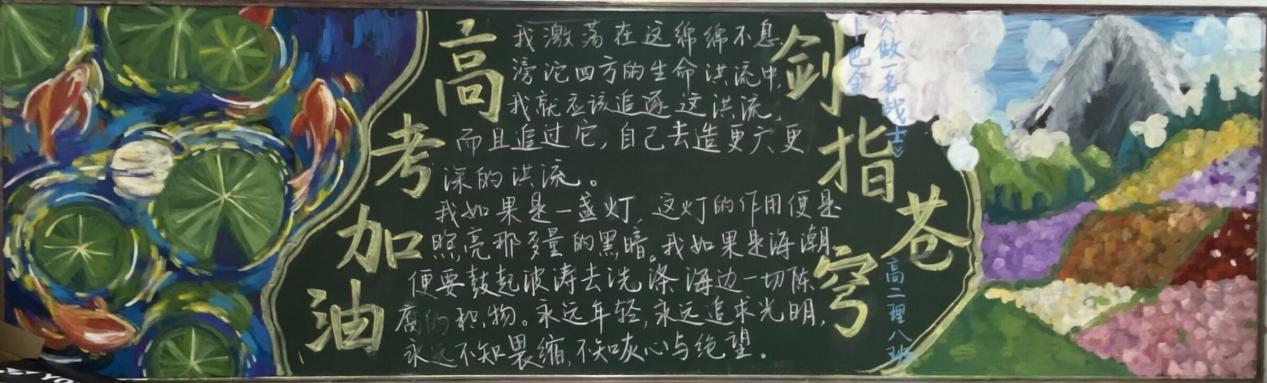 高考加油
我激荡在这绵绵不息、
滂沱四方的生命洪流中,
我就应该追逐这洪流,
而且追过它,自己去造更广更
深的洪流。
我如果是一盏灯,这灯的作用便是
照亮那多量的黑暗。我如果是海潮,
便要鼓起波涛去洗涤海边一切陈
腐的积物。永远年轻,永远追求光明,
永远不知畏缩,不知灰心与绝望。
剑指苍穹
做一名战士
巴金
高二理八班